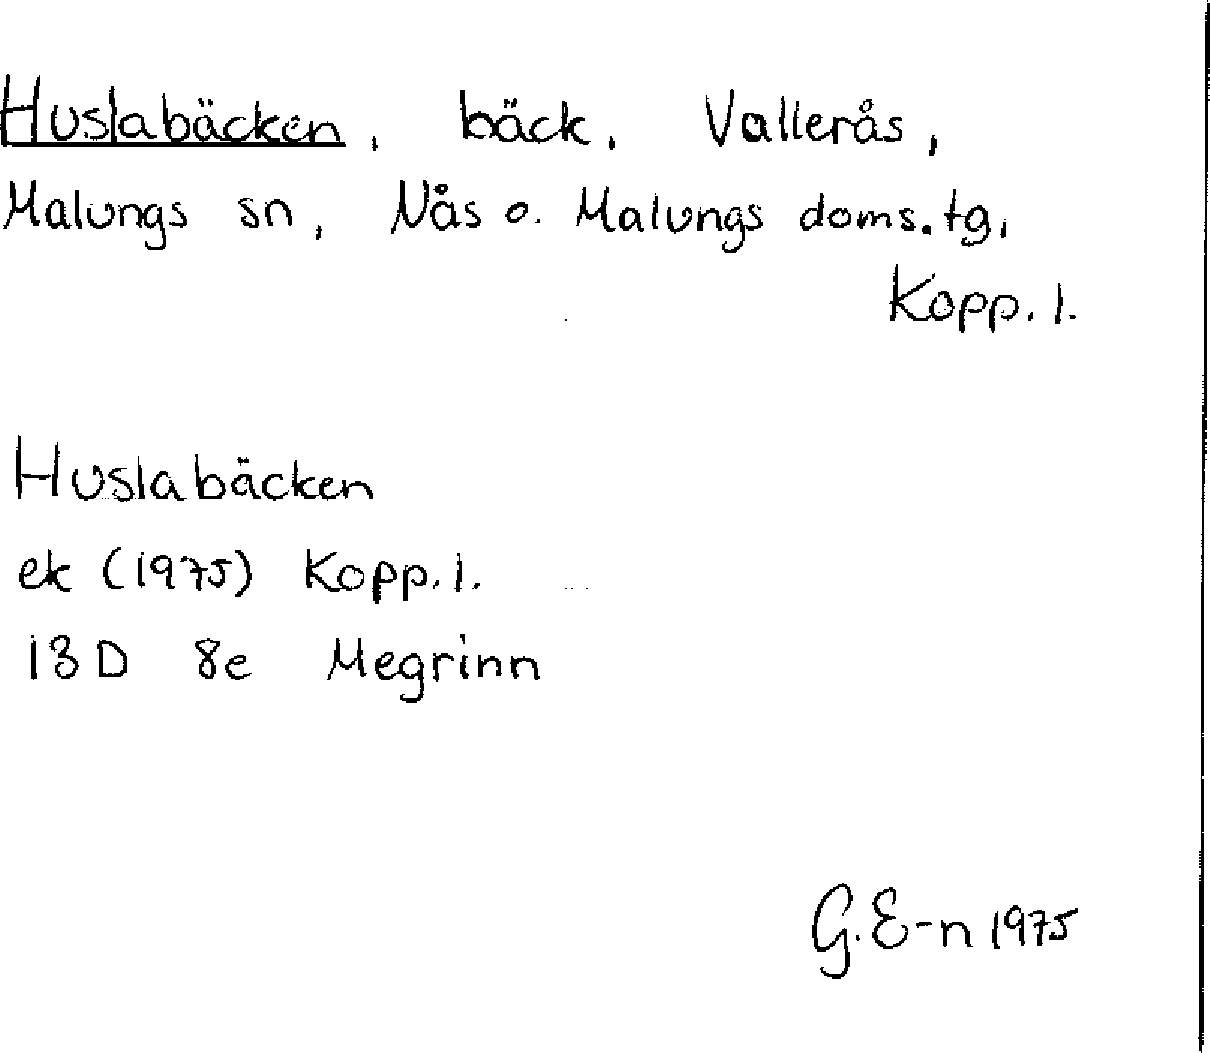 Huslabäcken, bäck, Vallerås,
Malungs sn, Nås o. Malungs doms.tg,
Kopp. l.
Huslabäcken
ek (1975) Kopp. l.
13D 8e Megrinn
G. E-n 1975